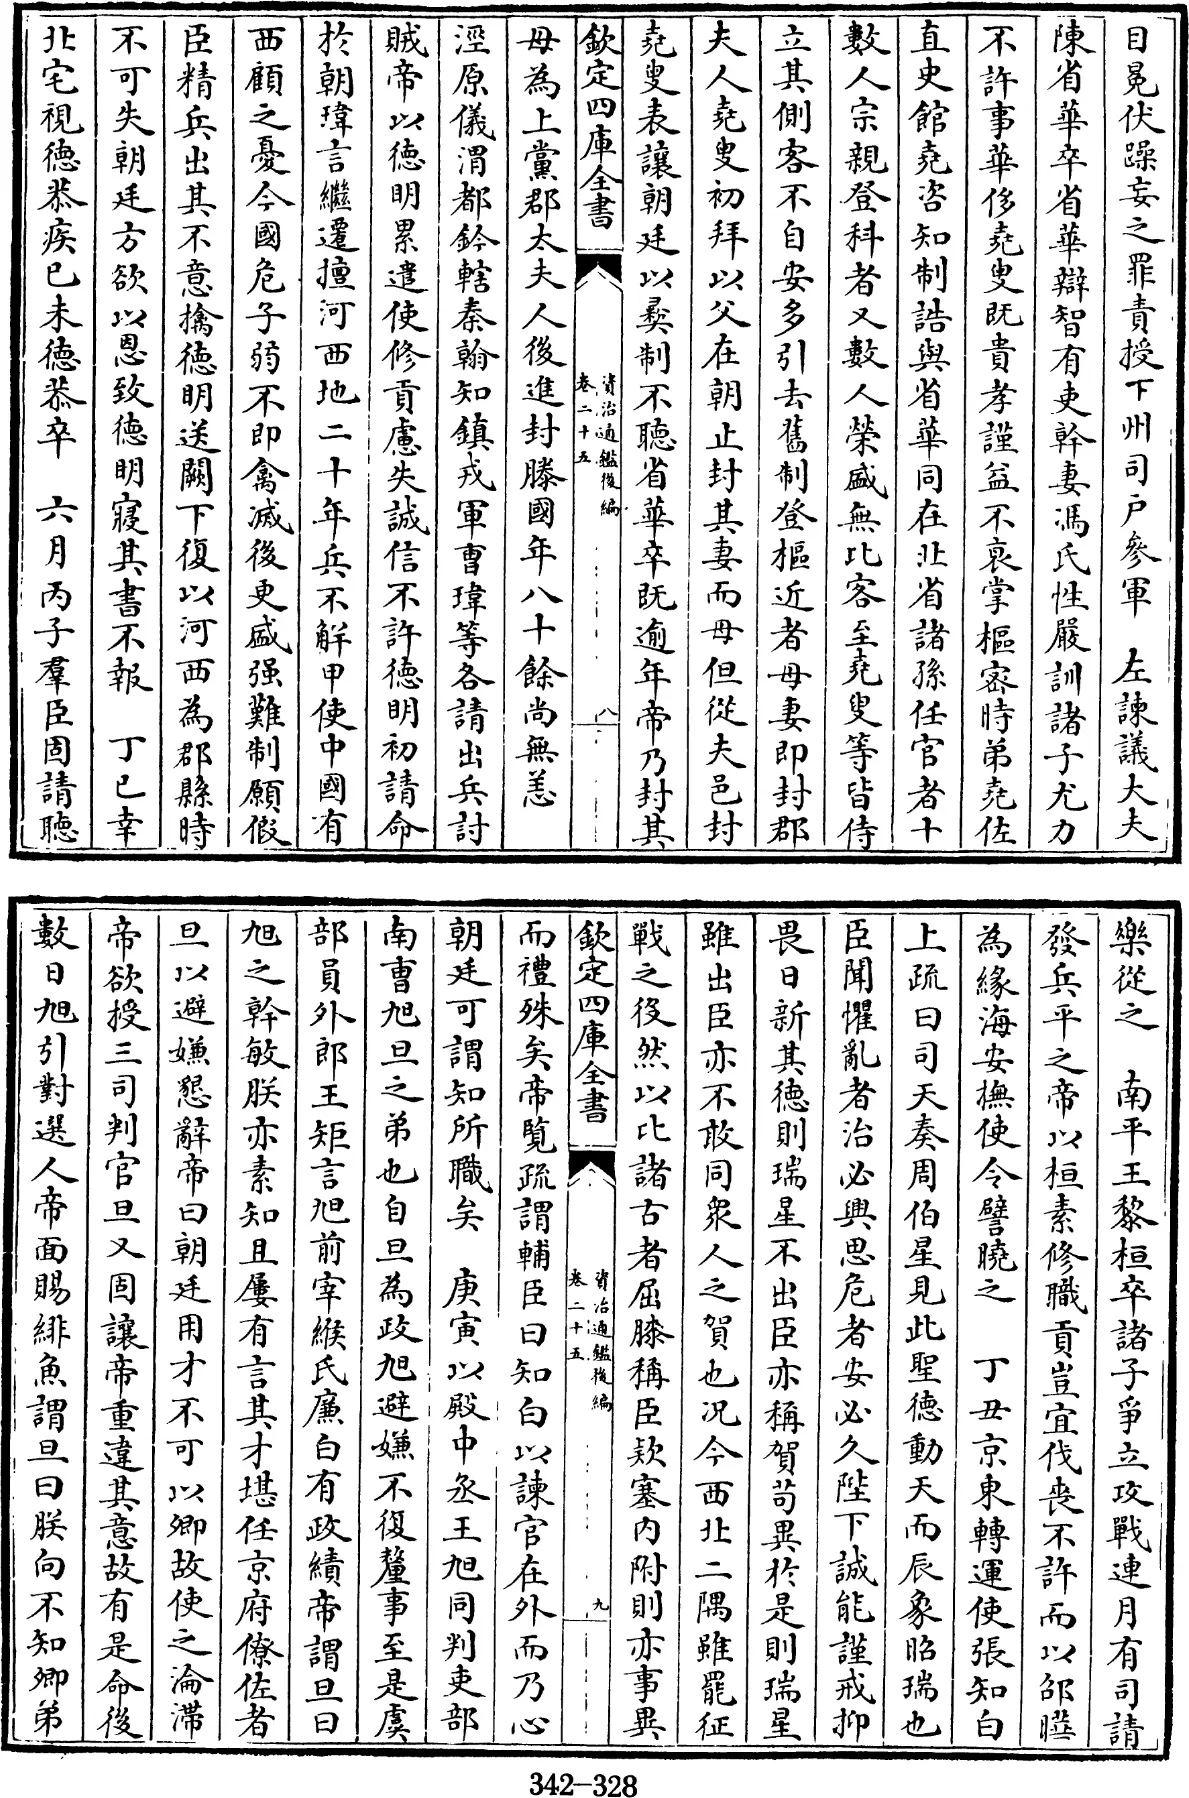 目冕伏躁妄之罪責授下州司戶參軍　左諫議大夫
陳省華卒省華辯智有吏幹妻馮氏性嚴訓諸子尤力
不許事華侈堯叟既貴孝謹益不衰掌樞密時弟堯佐
直史館堯咨知制誥與省華同在北省諸孫任官者十
數人宗親登科者又數人榮盛無比客至堯叟等皆侍
立其側客不自安多引去舊制登樞近者母妻即封郡
夫人堯叟初拜以父在朝止封其妻而母但從夫邑封
堯叟表讓朝廷以彝制不聽省華卒既逾年帝乃封其
欽定四庫全書
資治通鑑後編
卷二十五
八
母為上黨郡太夫人後進封滕國年八十餘尚無恙
涇原儀渭都鈐轄秦翰知鎮戎軍曹瑋等各請出兵討
賊帝以德明累遣使修貢慮失誠信不許德明初請命
於朝瑋言繼遷擅河西地二十年兵不解甲使中國有
西顧之憂今國危子弱不即禽滅後更盛强難制願假
臣精兵出其不意擒德明送闕下復以河西為郡縣時
不可失朝廷方欲以恩致德明寢其書不報　丁巳幸
北宅視德恭疾己未德恭卒　六月丙子羣臣固請聽
樂從之　南平王黎桓卒諸子爭立攻戰連月有司請
發兵平之帝以桓素修職貢豈宜伐喪不許而以邵曄
為緣海安撫使令譬曉之　丁丑京東轉運使張知白
上疏曰司天奏周伯星見此聖德動天而辰象昭瑞也
臣聞懼亂者治必興思危者安必久陛下誠能謹戒抑
畏日新其德則瑞星不出臣亦稱賀苟異於是則瑞星
雖出臣亦不敢同衆人之賀也况今西北二隅雖罷征
戰之役然以比諸古者屈膝稱臣欵塞内附則亦事異
欽定四庫全書
資治通鑑後編
卷二十五
九
而禮殊矣帝覽疏謂輔臣曰知白以諫官在外而乃心
朝廷可謂知所職矣　庚寅以殿中丞王旭同判吏部
南曹旭旦之弟也自旦為政旭避嫌不復釐事至是虞
部員外郎王矩言旭前宰緱氏廉白有政績帝謂旦曰
旭之幹敏朕亦素知且屢有言其才堪任京府僚佐者
旦以避嫌懇辭帝曰朝廷用才不可以卿故使之淪滯
帝欲授三司判官旦又固讓帝重違其意故有是命後
數日旭引對選人帝面賜緋魚謂旦曰朕向不知卿弟
342-328